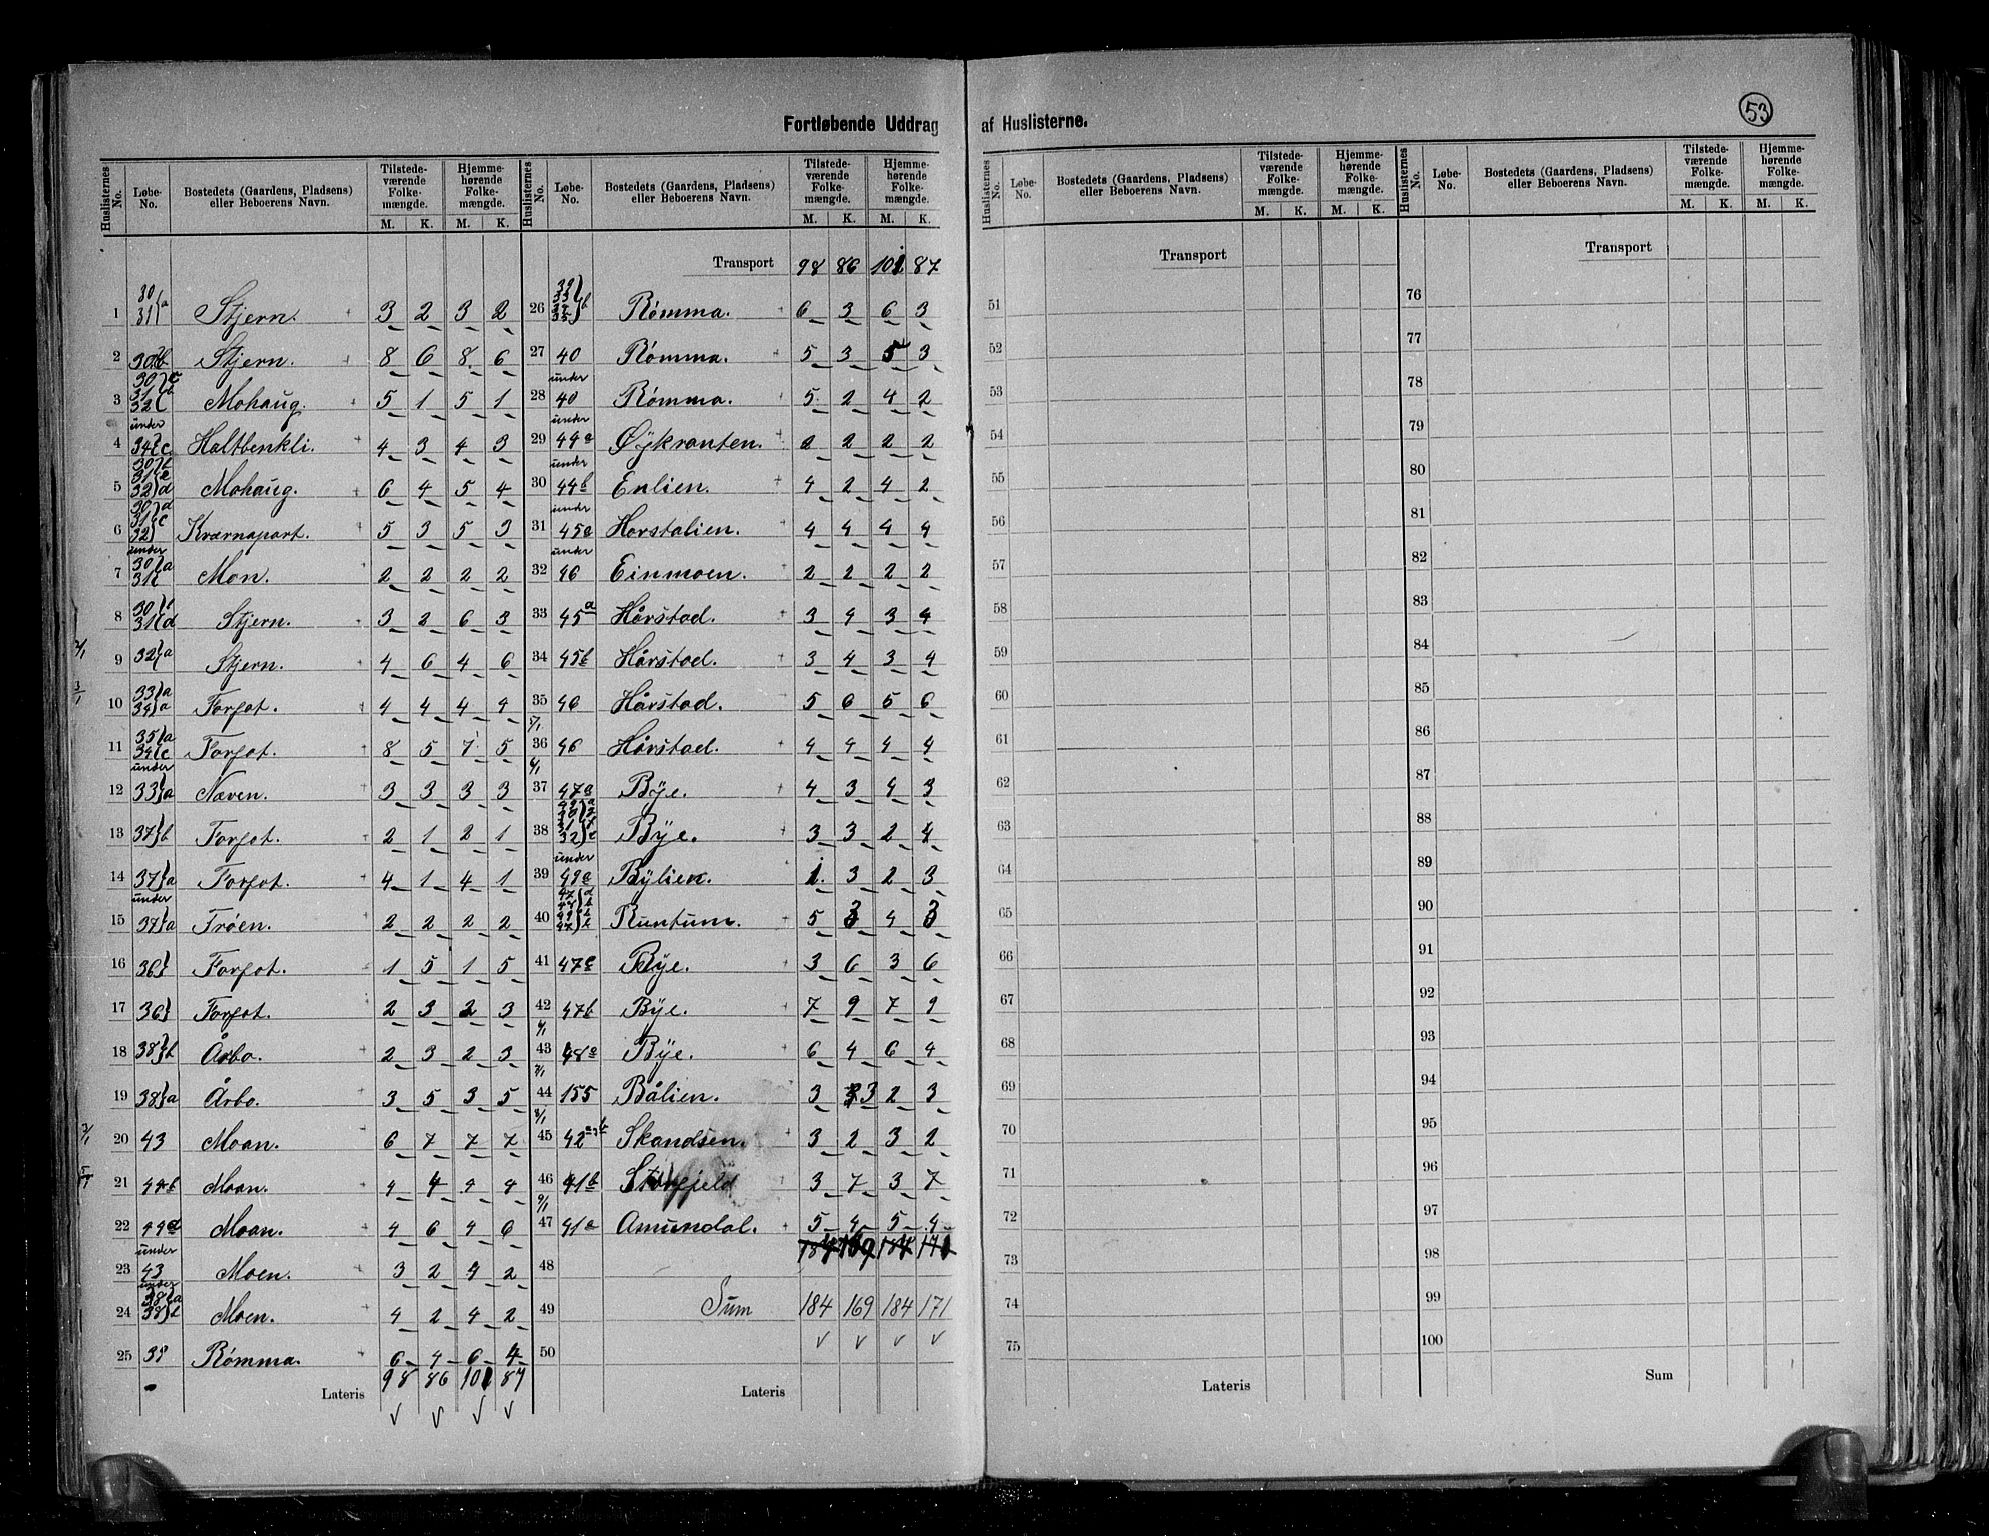 53
Fortløbende Uddrag af Huslisterne.
Huslisternes No. Løbe-No. Bostedets (Gaardens, Pladsens) eller Beboerens Navn. Tilstedeværende Folkemængde. M. K. Hjemmehørende Folkemængde. M. K.
1 30 31 a Stjern. 3 2 3 2
2 30 b Stjern. 8 6 8 6
3 30 c 31 b 32 Mohaug. 5 1 5 1
4 under 34 c Haltbenkli. 4 3 4 3
5 30 31 e 32 d Mohaug. 6 4 5 4
6 30 d 31 c 32 Kværnapart. 5 3 5 3
7 under 30 31 a Mon. 2 2 2 2
8 30 31 d Stjern. 3 2 6 3
2/1
9 32 a Stjern. 4 6 4 6
3/1
10 33 a 34 a Forfot. 4 4 4 4
11 35 a 34 c Forfot. 8 5 7 5
12 under 33 a Næven. 3 3 3 3
13 37 b Forfot. 2 1 2 1
14 37 a Forfot. 4 1 4 1
15 under 37 a Frøen. 2 2 2 2
16 36 Forfot. 1 5 1 5
17 36 Forfot. 2 3 2 3
18 38 b Årbo. 2 3 2 3
19 38 a Årbo. 3 5 3 5
3/1
20 43 Moan. 6 7 7 7
5/1
21 44 b Moan. 4 4 4 4
22 44 d Moan. 4 6 4 6
23 under 43 Moen. 3 2 4 2
24 under 38 a 38 b Moen. 4 2 4 2
25 39 Rømma. 6 4 6 4
Lateris 98 86 101 87
Huslisternes No. Løbe-No. Bostedets (Gaardens, Pladsens) eller Beboerens Navn. Tilstedeværende Folkemængde. M. K. Hjemmehørende Folkemængde. M. K.
Transport 98 86 101 87
26 Rømma. 6 3 6 3
27 40 Rømma. 5 3 5 3
28 under 40 Rømma. 5 2 4 2
29 under 44 a Øykranten. 2 2 2 2
30 under 44 b Enlien. 4 2 4 2
31 under 45 a Horstalien. 4 4 4 4
32 under 46 Einmoen. 2 2 2 2
33 45 a Hårstad. 3 4 3 4
34 45 b Hårstad. 3 4 3 4
35 46 Hårstad. 5 6 5 6
5/1
36 46 Hårstad. 4 4 4 4
6/1
37 47 a Bye. 4 3 4 3
38 Bye. 3 3 2 4
39 under 49 a Bylien. 1 3 2 3
40 Runtum. 5 3 4 3
41 47 c Bye. 3 6 3 6
42 47 b Bye. 7 9 7 9
6/1
43 48 a Bye. 6 4 6 4
7/1
44 155 Bålien. 3 3 2 3
8/1
45 42 Skandsen. 3 2 3 2
46 41 b Storfjeld 3 7 3 7
9/1
47 41 a Amundal. 5 4 5 4
184 169 184 171
48
49 Sum 184 169 184 171
50
Lateris
Huslisternes No. Løbe-No. Bostedets (Gaardens, Pladsens) eller Beboerens Navn. Tilstedeværende Folkemængde. M. K. Hjemmehørende Folkemængde. M. K.
Transport
51
52
53
54
55
56
57
58
59
60
61
62
63
64
65
66
67
68
69
70
71
72
73
74
75
Lateris
Huslisternes No. Løbe-No. Bostedets (Gaardens, Pladsens) eller Beboerens Navn. Tilstedeværende Folkemængde. M. K. Hjemmehørende Folkemængde. M. K.
Transport
76
77
78
79
80
81
82
83
84
85
86
87
88
89
90
91
92
93
94
95
96
97
98
99
100
Sum